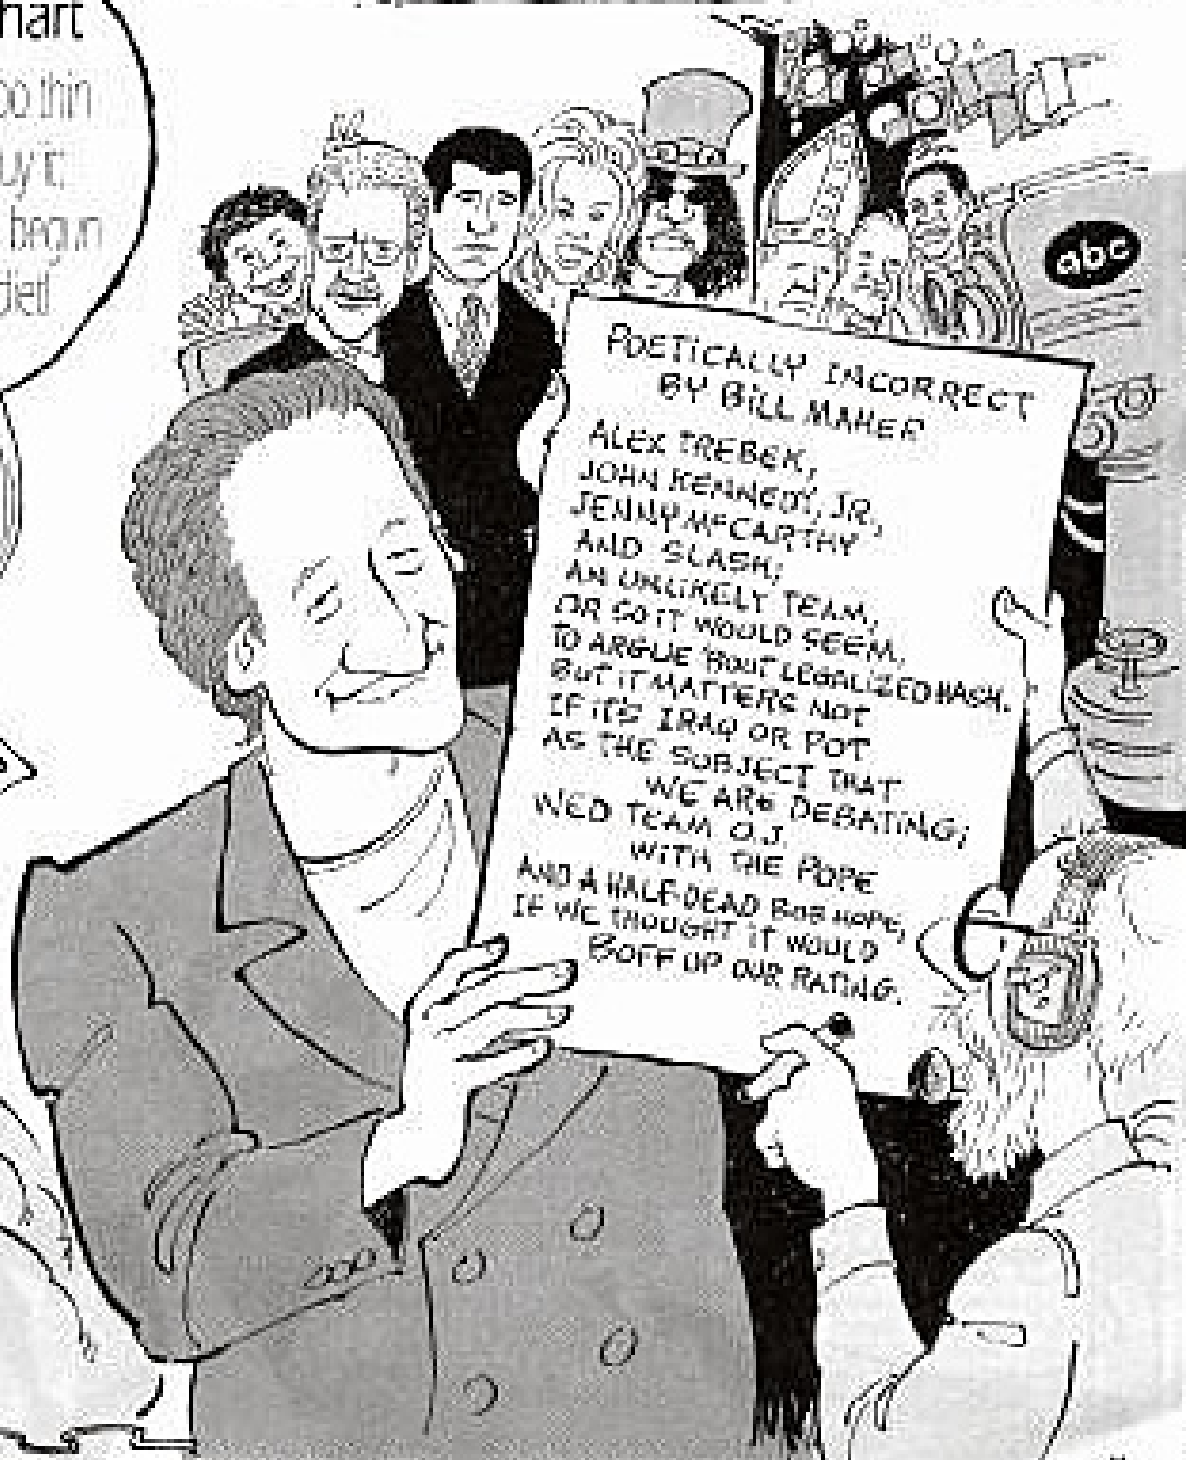 hart
oo thin
uy it;
begun
died
abc
POETICALLY INCORRECT
BY BILL MAHER
ALEX TREBEK,
JOHN KENNEDY, JR.,
JENNY McCARTHY
AND SLASH;
AN UNLIKELY TEAM,
OR SO IT WOULD SEEM,
TO ARGUE 'BOUT LEGALIZED HASH.
BUT IT MATTERS NOT
IF IT'S IRAQ OR POT
AS THE SUBJECT THAT
WE ARE DEBATING;
WED TEAM O.J.
WITH THE POPE
AND A HALF-DEAD BOB HOPE,
IF WE THOUGHT IT WOULD
BOFF UP OUR RATING.